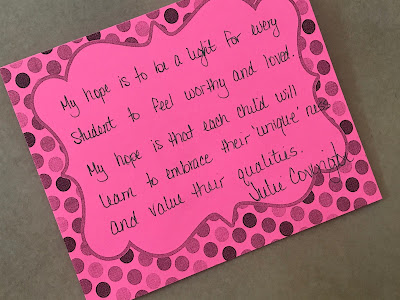 My hope is to be a light for every
student to feel worthy and loved.
My hope is that each child will
learn to embrace their 'unique' ness
and value their qualities.
Julie